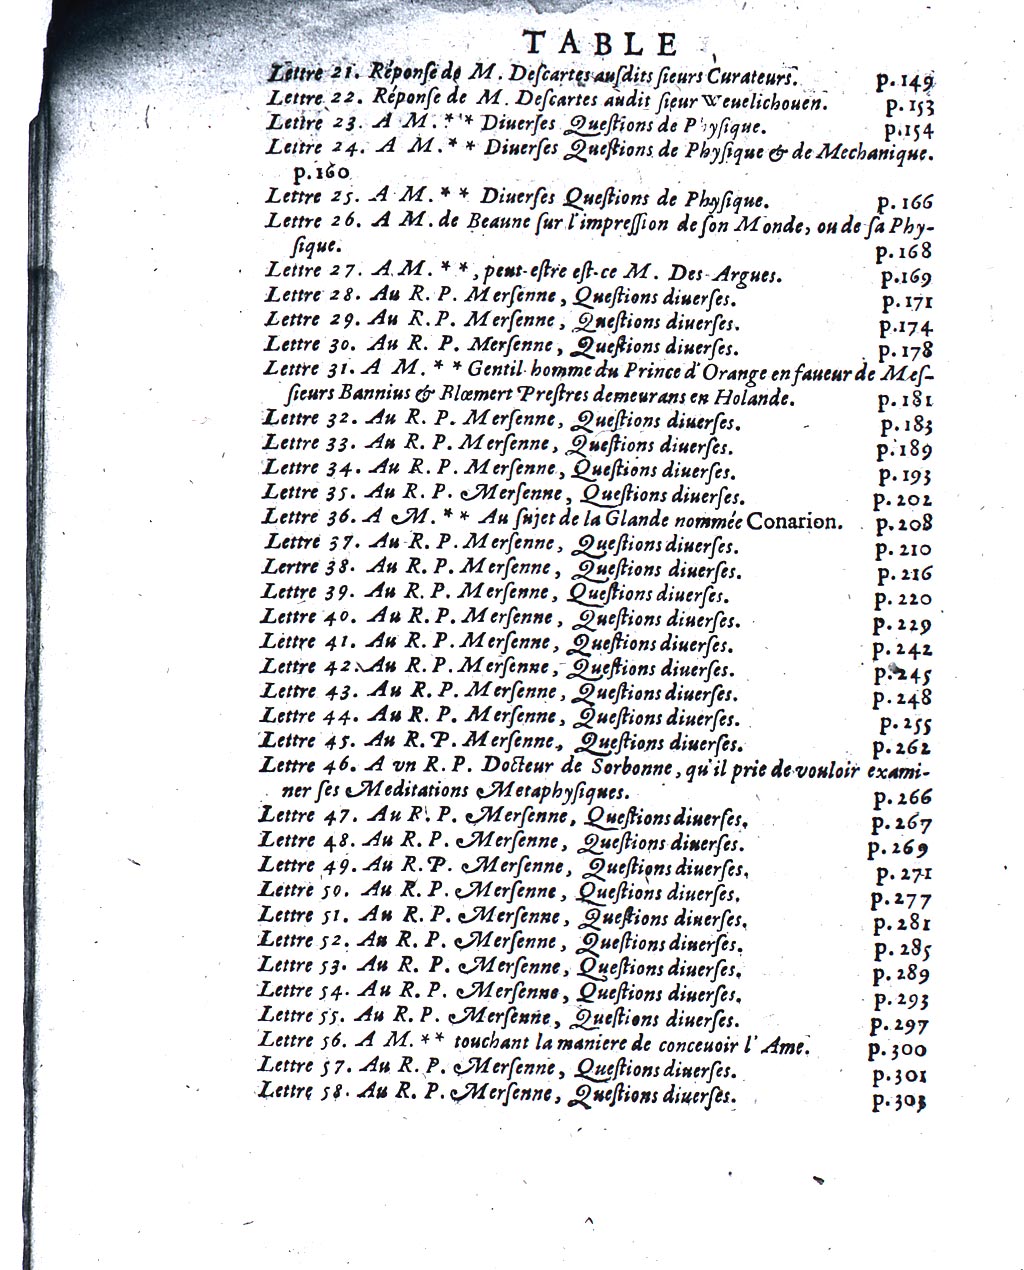 TABLE
Lettre 21. Réponſe de M. Deſcartes auſdits ſieurs Curateurs. p.149
Lettre 22. Réponſe de M. Deſcartes audit ſieur Weuelichouen. p.153
Lettre 23. A M. ** Diuerſes Queſtions de Phyſique. p.154
Lettre 24. A M. ** Diuerſes Queſtions de Phyſique & de Mechanique.
p.160
Lettre 25. A M. ** Diuerſes Queſtions de Phyſique. p.166
Lettre 26. A M. de Beaune ſur l'impreſſion de ſon Monde, ou de ſa Phy-
ſique. p.168
Lettre 27. A M. **, peut-eſtre eſt-ce M. Des-Argues. p.169
Lettre 28. Au R. P. Merſenne, Queſtions diuerſes. p.171
Lettre 29. Au R. P. Merſenne, Queſtions diuerſes. p.174
Lettre 30. Au R. P. Merſenne, Queſtions diuerſes. p.178
Lettre 31. A M. ** Gentil-homme du Prince d'Orange en faueur de Meſ-
ſieurs Bannius & Blœmert Preſtres demeurans en Holande. p.181
Lettre 32. Au R. P. Merſenne, Queſtions diuerſes. p.183
Lettre 33. Au R. P. Merſenne, Queſtions diuerſes. p.189
Lettre 34. Au R. P. Merſenne, Queſtions diuerſes. p.193
Lettre 35. Au R. P. Merſenne, Queſtions diuerſes. p.202
Lettre 36. A M. ** Au ſujet de la Glande nommée Conarion. p.208
Lettre 37. Au R. P. Merſenne, Queſtions diuerſes. p.210
Lertre 38. Au R. P. Merſenne, Queſtions diuerſes. p.216
Lettre 39. Au R. P. Merſenne, Queſtions diuerſes. p.220
Lettre 40. Au R. P. Merſenne, Queſtions diuerſes. p.229
Lettre 41. Au R. P. Merſenne, Queſtions diuerſes. p.242
Lettre 42. Au R. P. Merſenne, Queſtions diuerſes. p.245
Lettre 43. Au R. P. Merſenne, Queſtions diuerſes. p.248
Lettre 44. Au R. P. Merſenne, Queſtions diuerſes. p.255
Lettre 45. Au R. P. Merſenne, Queſtions diuerſes. p.262
Lettre 46. A vn R. P. Docteur de Sorbonne, qu'il prie de vouloir exami-
ner ſes Meditations Metaphyſiques. p.266
Lettre 47. Au R. P. Merſenne, Queſtions diuerſes. p.267
Lettre 48. Au R. P. Merſenne, Queſtions diuerſes. p.269
Lettre 49. Au R. P. Merſenne, Queſtions diuerſes. p.271
Lettre 50. Au R. P. Merſenne, Queſtions diuerſes. p.277
Lettre 51. Au R. P. Merſenne, Queſtions diuerſes. p.281
Lettre 52. Au R. P. Merſenne, Queſtions diuerſes. p.285
Lettre 53. Au R. P. Merſenne, Queſtions diuerſes. p.289
Lettre 54. Au R. P. Merſenne, Queſtions diuerſes. p.293
Lettre 55. Au R. P. Merſenne, Queſtions diuerſes. p.297
Lettre 56. A M. ** touchant la maniere de conceuoir l'Ame. p.300
Lettre 57. Au R. P. Merſenne, Queſtions diuerſes. p.301
Lettre 58. Au R. P. Merſenne, Queſtions diuerſes. p.303